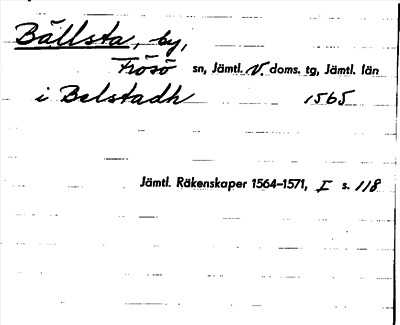 Bällsta, by,
Frösö sn, Jämtl. V. doms. tg, Jämtl. län
i Belstadh 1565
Jämtl. Räkenskaper 1564–1571, I s. 118